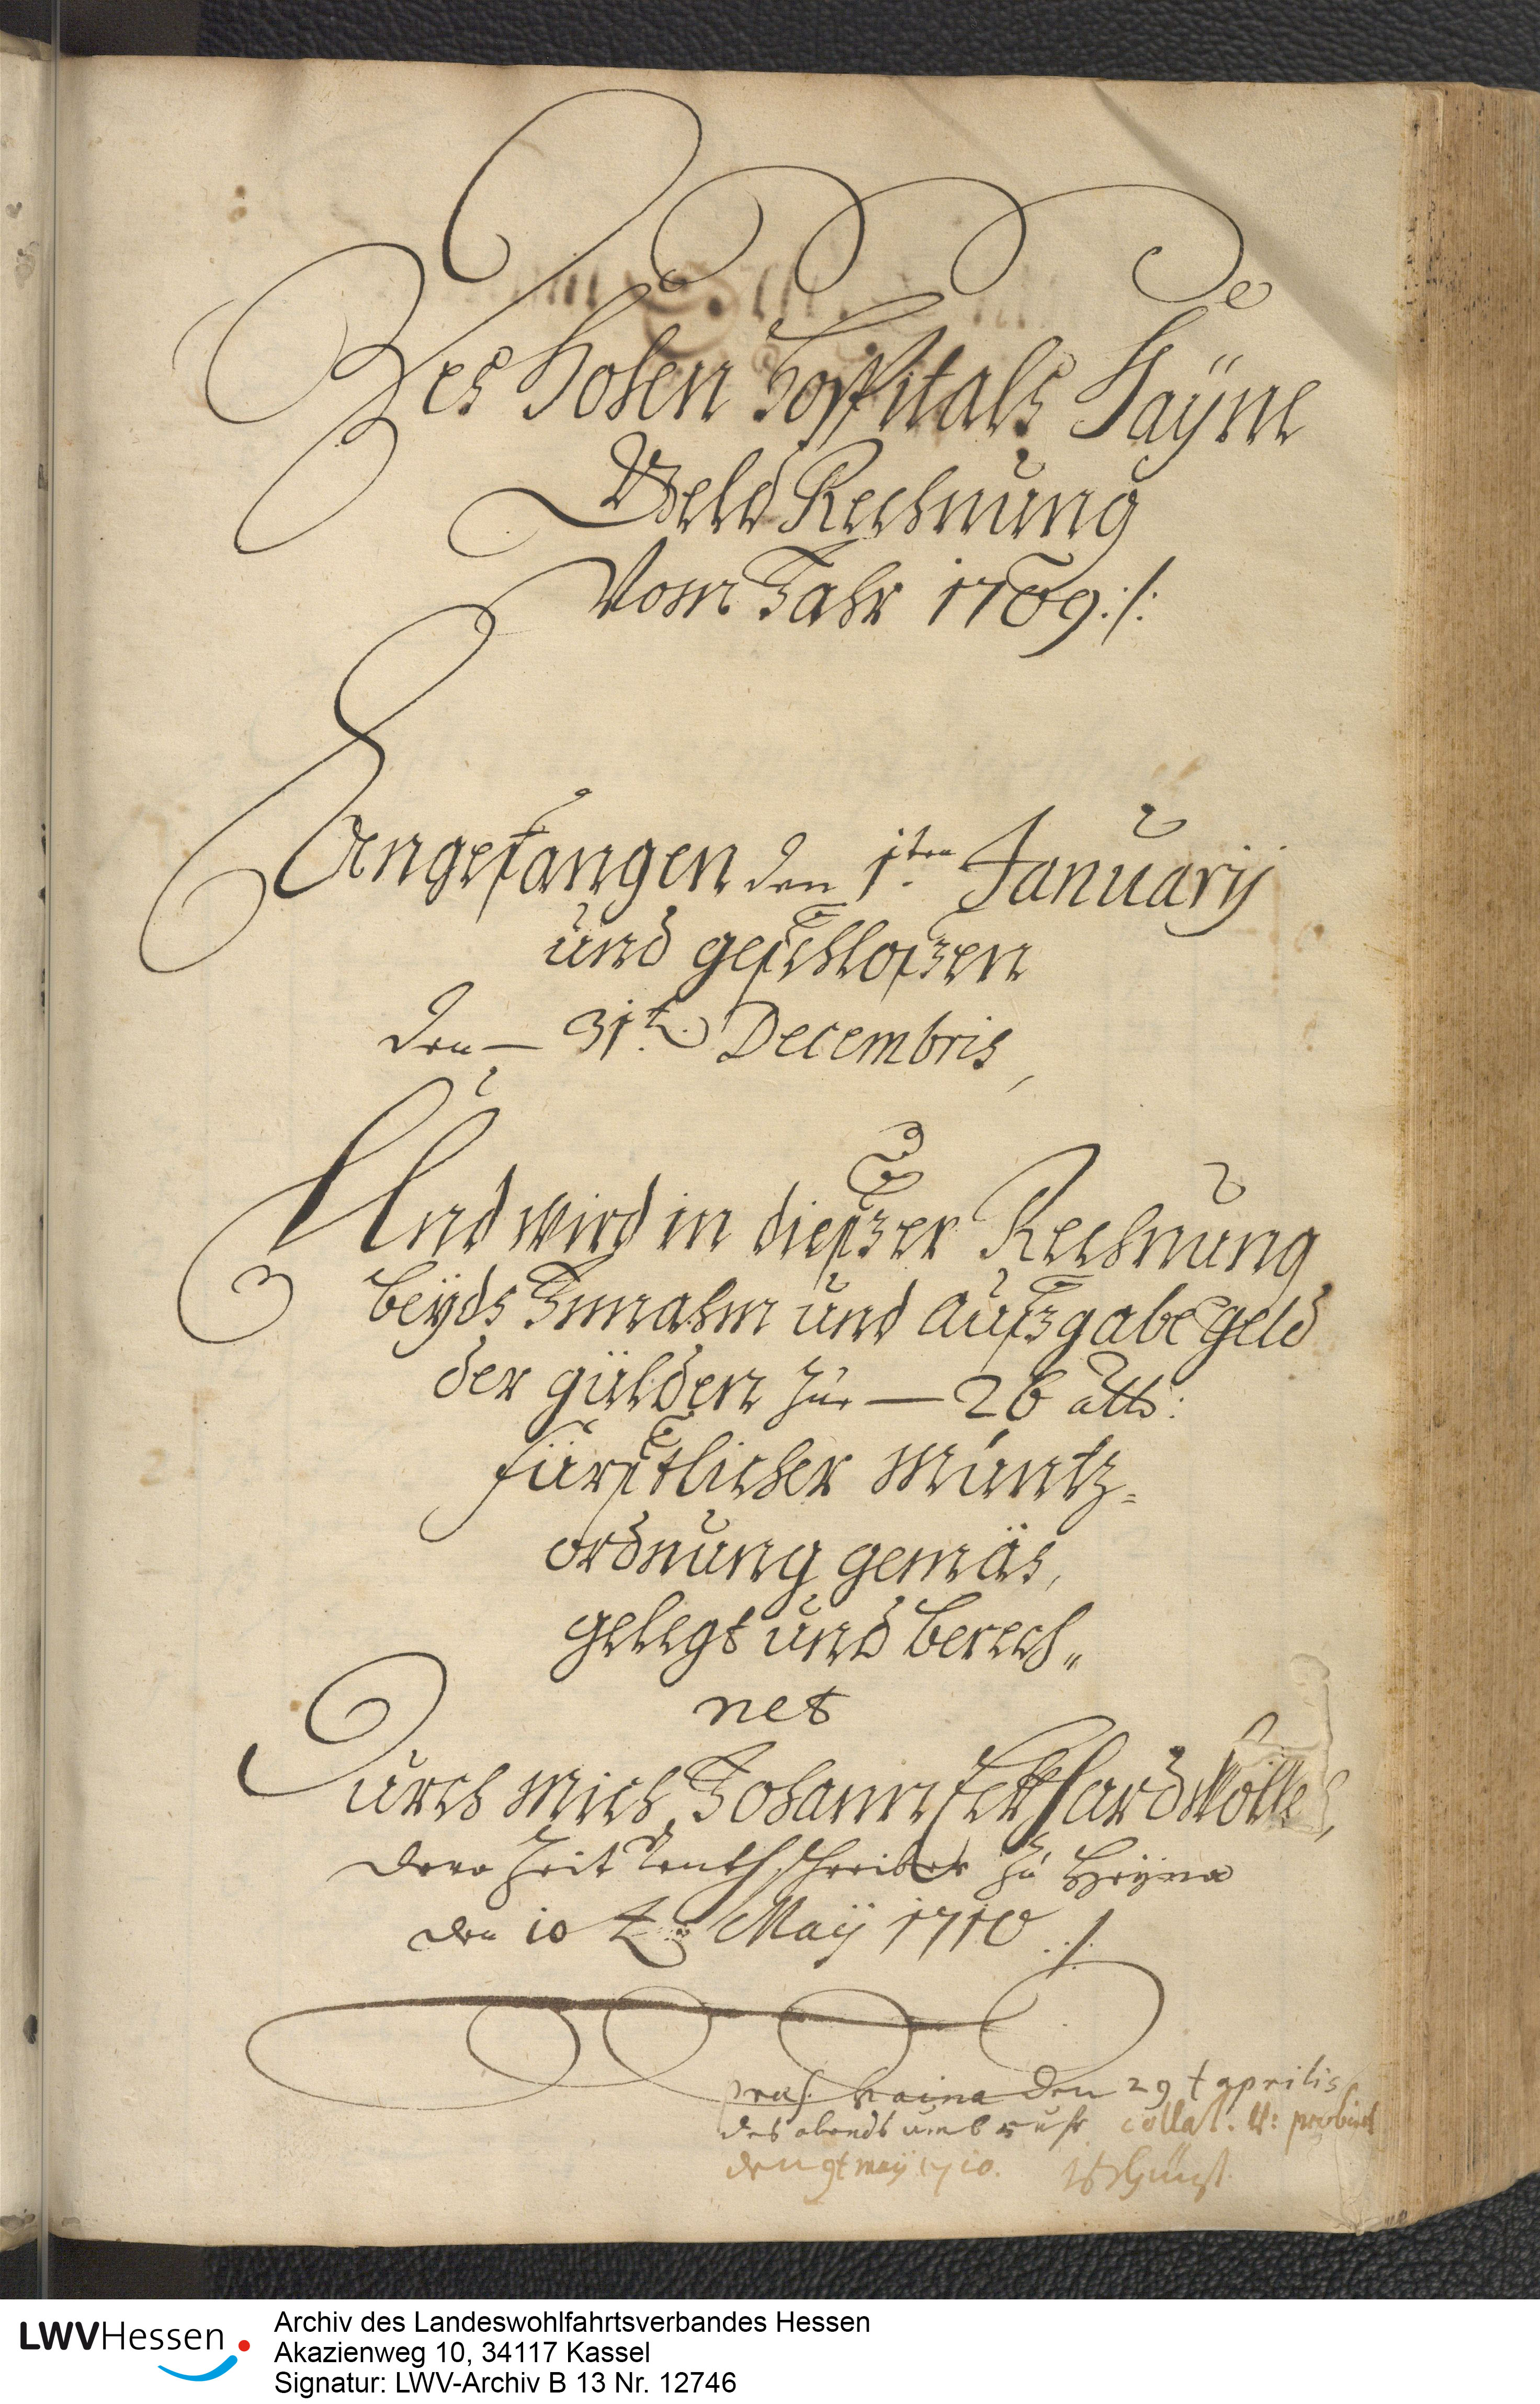 Des Hohen Hospitals Haÿne
Geld Rechnung
Vom Jahr 1709 :/:
Angefangen den 1.ten Januarij
und geschloszen
den — 31.t. Decembris,
Und wird in dieszer Rechnung
beÿds Innahm und Auszgabe geld
der gülden zu — 26 alb:
fürstlicher Müntz=
ordnung gemäs,
gelegt und berech„
net
Durch mich Johann Eckhard
dero Zeit schreiber zu Heÿna
den 10 t. Maÿ 1710 ./.
præs. Haina den 29 t aprilis
des abends umb 5 uhr collat. u: probirt
den 9t maÿ 1710.
LWVHessen
Archiv des Landeswohlfahrtsverbandes Hessen
Akazienweg 10, 34117 Kassel
Signatur: LWV-Archiv B 13 Nr. 12746